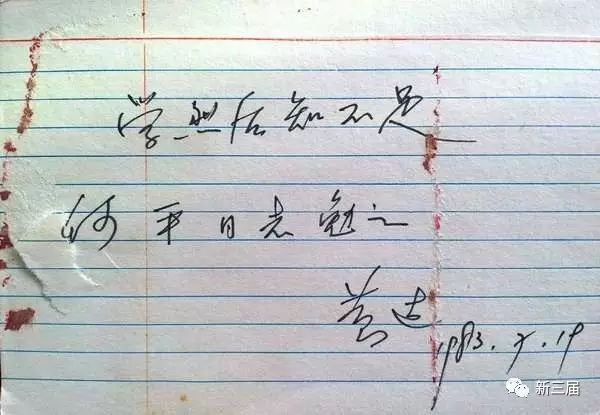 学然后知不足
何平同志勉之
黄达
1983.7.19
新三届